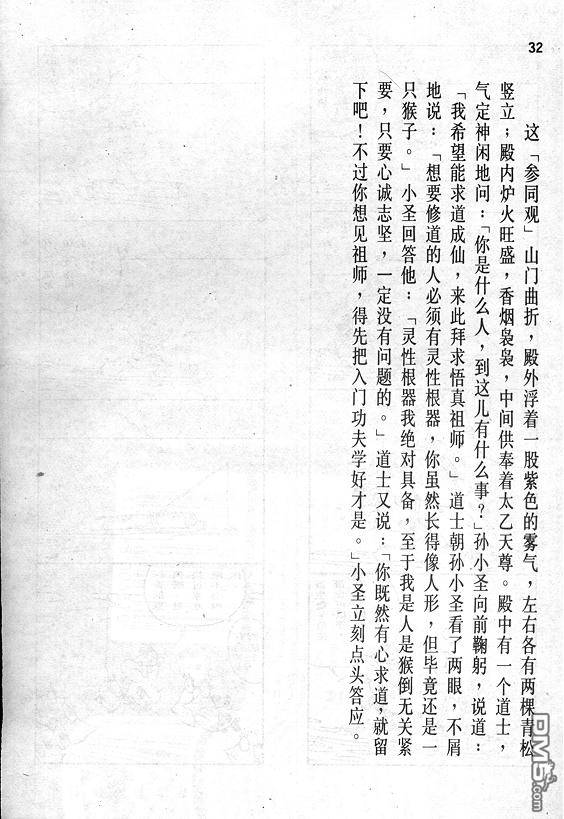 32
这「参同观」山门曲折，殿外浮着一股紫色的雾气，左右各有两棵青松
竖立；殿内炉火旺盛，香烟袅袅，中间供奉着太乙天尊。殿中有一个道士，
气定神闲地问：「你是什么人，到这儿有什么事？」孙小圣向前鞠躬，说道：
「我希望能求道成仙，来此拜求悟真祖师。」道士朝孙小圣看了两眼，不屑
地说：「想要修道的人必须有灵性根器，你虽然长得像人形，但毕竟还是一
只猴子。」小圣回答他：「灵性根器我绝对具备，至于我是人是猴倒无关紧
要，只要心诚志坚，一定没有问题的。」道士又说：「你既然有心求道，就留
下吧！不过你想见祖师，得先把入门功夫学好才是。」小圣立刻点头答应。
DM5.com